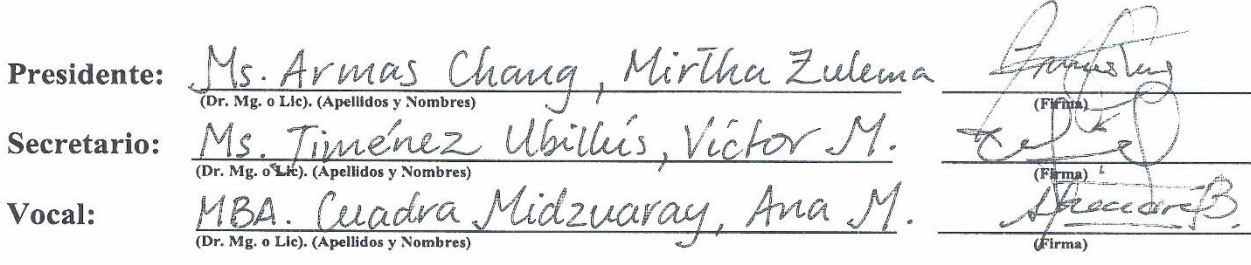 Presidente: Ms. Armas Chang, Mirtha Zulema
(Dr. Mg. o Lic). (Apellidos y Nombres) (Firma)
Secretario: Ms. Jiménez Ubillús, Víctor M.
(Dr. Mg. o Lic). (Apellidos y Nombres) (Firma)
Vocal: MBA. Cuadra Midzuaray, Ana M.
(Dr. Mg. o Lic). (Apellidos y Nombres) (Firma)